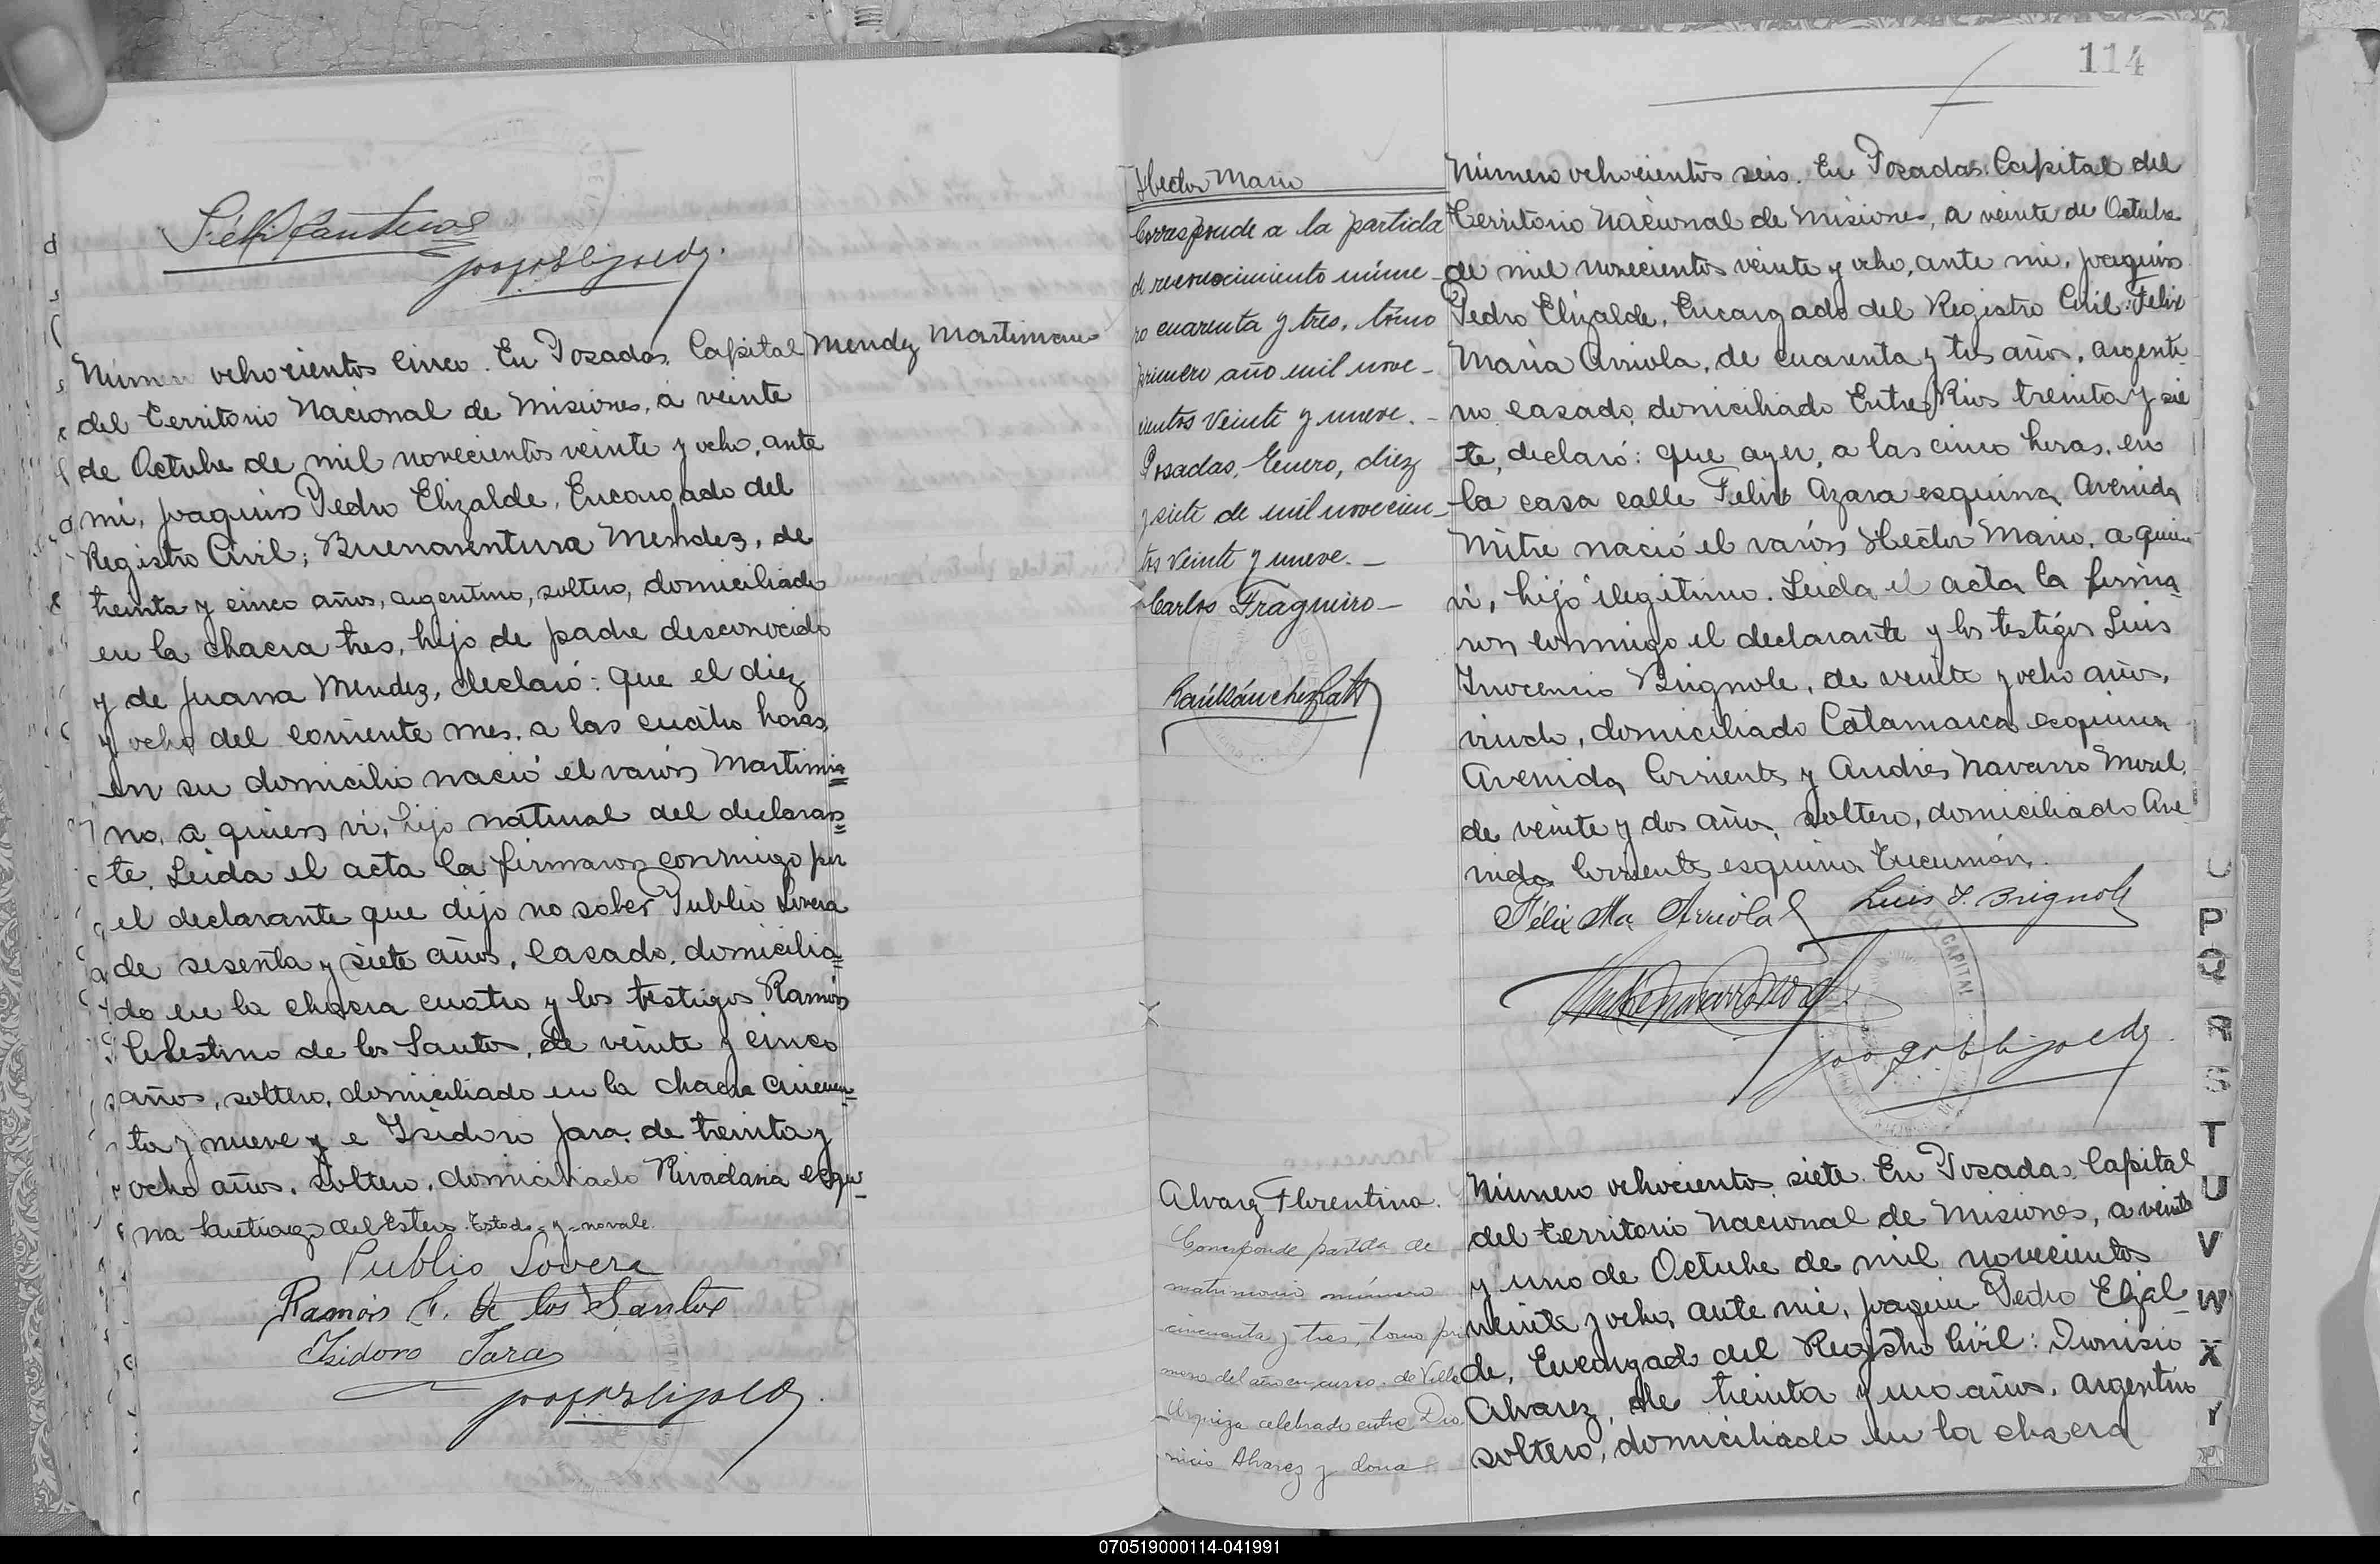 Número ochocientos cinco. En Posadas, Capital
del Territorio Nacional de Misiones, a veinte
de Octubre de mil novecientos veinte y ocho, ante
mi, Joaquin Pedro Elizalde, Encargado del
Registro Civil; Buenaventura Mendez, de
treinta y cinco años, argentino, soltero, domiciliado
en la chacra tres, hijo de padre desconocido
y de Juana Mendez, declaró: que el diez
y ocho del corriente mes, a las cuatro horas,
en su domicilio nació el varón Martimia
no, a quien vi, hijo natural del declaran
te. Leida el acta la firmaron conmigo por
el declarante que dijo no saber Publio Lovera
de sesenta y siete años, casado, domicilia
do en la chacra cuatro y los testigos Ramón
Celestino de los Santos, de veinte y cinco
años, soltero, domiciliado en la chacra cincuen
ta y nueve y e Isidoro Jara, de treinta y
ocho años, soltero, domiciliado Rivadavia esqui
na Santiago del Estero. Estado-y-no vale.
Publio Lovera
Ramón C. de los Santos
Isidoro Jara
Mendez Martimiano
114
Hector Mario
Corresponde a la partida
de reconocimiento núme-
ro cuarenta y tres, tómo
primero año mil nove-
cientos veinte y nueve.-
Posadas, Enero, diez
y siete de mil novecien-
tos veinte y nueve.-
Carlos Fragueiro-
Número ochocientos seis. En Posadas, Capital del
Territorio Nacional de Misiones, a veinte de Octubre
de mil novecientos veinte y ocho, ante mi, Joaquin
Pedro Elizalde, Encargado del Registro Civil: Felix
Maria Arriola, de cuarenta y tres años, argenti
no casado, domiciliado Entre Rios treinta y sie
te, declaró: que ayer, a las cinco horas, en
la casa calle Felix Azara esquina Avenida
Mitre nació el varón Hector Mario, a quien
vi, hijo ilegitimo. Leida el acta la firma
ron conmigo el declarante y los testigos Luis
Inocencio Brignole, de veinte y ocho años,
viudo, domiciliado Catamarca esquina
Avenida Corrientes y Andrés Navarro Morel,
de veinte y dos años, soltero, domiciliado Ave
nida Corrientes esquina Tucumán.
Félix Ma Arriola Luis I. Brignole
CAPITAL
Alvarez Florentina.
Corresponde partida de
matrimonio número
cincuenta y tres, tomo pri
mero del año en curso, de Villa
Urquiza celebrado entre Dio
nicio Alvarez y dona
Número ochocientos siete. En Posadas, Capital
del Territorio Nacional de Misiones, a veinte
y uno de Octubre de mil novecientos
veinte y ocho, ante mi, Joaquin Pedro Elizal
de, Encargado del Registro Civil: Dionisio
Alvarez, de treinta y uno años, argentino
soltero, domiciliado en la chacra
P
Q
R
S
T
U
V
W
X
Y
070519000114-041991